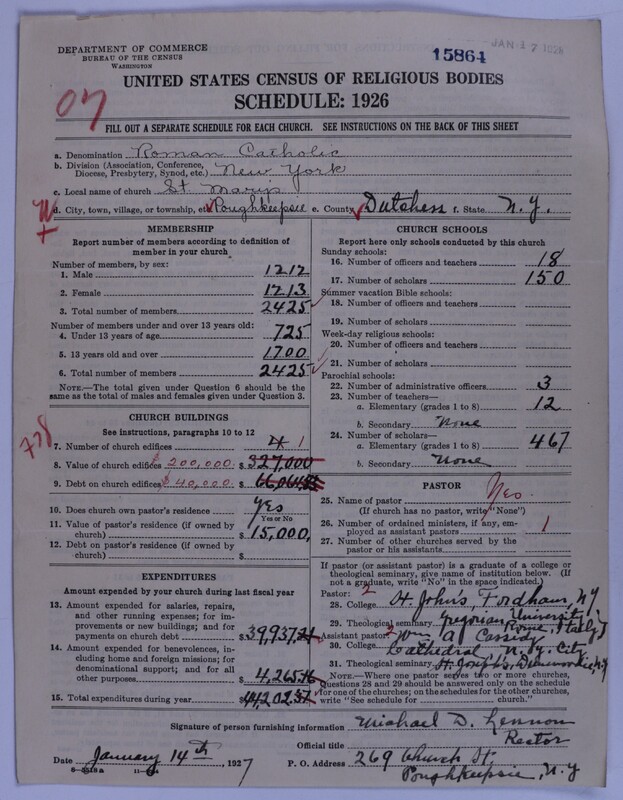 DEPARTMENT OF COMMERCE
BUREAU OF THE CENSUS
WASHINGTON
15864
JAN 17 1928
UNITED STATES CENSUS OF RELIGIOUS BODIES
SCHEDULE: 1926
FILL OUT A SEPARATE SCHEDULE FOR EACH CHURCH. SEE INSTRUCTIONS ON THE BACK OF THIS SHEET
a. Denomination Roman Catholic
b. Division (Association, Conference, Diocese, Presbytery, Synod, etc.) New York
c. Local name of church St. Mary's
d. City, town, village, or township, etc. Poughkeepsie e. County Dutchess f. State N.Y.
MEMBERSHIP
Report number of members according to definition of
member in your church
Number of members, by sex:
1. Male 1212
2. Female 1213
3. Total number of members 2425
Number of members under and over 13 years old:
4. Under 13 years of age 725
5. 13 years old and over 1700
6. Total number of members 2425
NOTE.—The total given under Question 6 should be
same as the total of males and females given under Question 3.
CHURCH BUILDINGS
See instructions, paragraphs 10 to 12
778
7. Number of church edifices 4 1
8. Value of church edifices $200,000. $327,000
9. Debt on church edifices $40,000. $
10. Does church own pastor's residence yes
Yes or No
11. Value of pastor's residence (if owned by
church) $15,000,
12. Debt on pastor's residence (if owned by
church) $
EXPENDITURES
Amount expended by your church during last fiscal year
13. Amount expended for salaries, repairs,
and other running expenses; for im-
provements or new buildings; and for
payments on church debt $39,937.21
14. Amount expended for benevolences,
including home and foreign missions; for
denominational support; and for all
other purposes $4,265.16
15. Total expenditures during year
CHURCH SCHOOLS
Report here only schools conducted by this church
Sunday schools:
16. Number of officers and teachers 18
17. Number of scholars 150
Summer vacation Bible schools:
18. Number of officers and teachers
19. Number of scholars
Week-day religious schools:
20. Number of officers and teachers
21. Number of scholars
Parochial schools:
22. Number of administrative officers 3
23. Number of teachers—
a. Elementary (grades 1 to 8) 12
b. Secondary None
24. Number of scholars—
a. Elementary (grades 1 to 8) 467
b. Secondary None
PASTOR
25. Name of pastor Yes
(If church has no pastor, write "None")
26. Number of ordained ministers, if any, em-
ployed as assistant pastors 1
27. Number of other churches served by the
pastor or his assistants
If pastor (or assistant pastor) is a graduate of a college or
theological seminary, give name of institution below. (If
not a graduate, write "No" in the space indicated.)
Pastor: 2
28. College St. John's, Fordham, N.Y.
29. Theological seminary Gregorian University, Rome, Italy
Assistant pastor: 2 Wm. A. Cassidy
30. College Cathedral N.Y. City
31. Theological seminary St. Joseph's, Dunwoodie, N.Y.
NOTE.—Where one pastor serves two or more churches,
Questions 28 and 29 should be answered only on the schedule
for one of the churches; on the schedules for the other churches,
write "See schedule for church."
Signature of person furnishing information Michael D. Lennon
Official title Rector
Date January 14th, 1927
P. O. Address 269 Church St.
Poughkeepsie, N.Y.